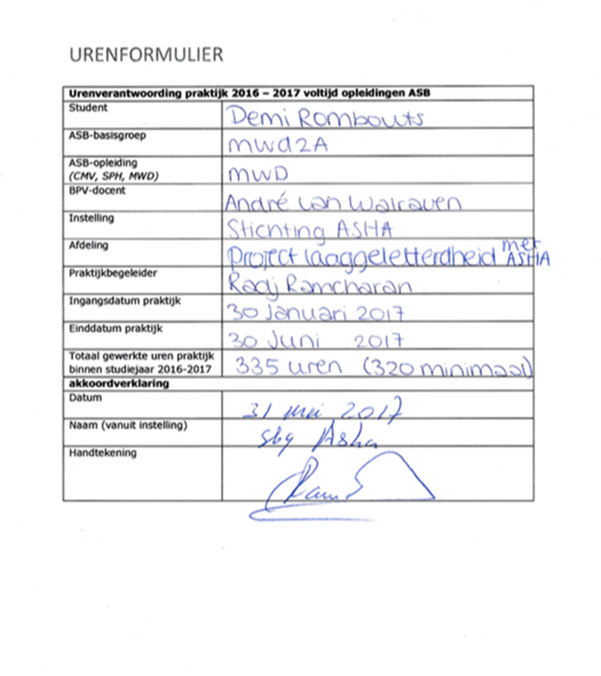 URENFORMULIER
Urenverantwoording praktijk 2016 – 2017 voltijd opleidingen ASB
Student Demi Rombouts
ASB-basisgroep mwd2A
ASB-opleiding
(CMV, SPH, MWD) MWD
BPV-docent André van Walraven
Instelling Stichting ASHA
Afdeling Project laaggeletterdheid met ASHA
Praktijkbegeleider Radj Ramcharan
Ingangsdatum praktijk 30 Januari 2017
Einddatum praktijk 30 Juni 2017
Totaal gewerkte uren praktijk
binnen studiejaar 2016-2017 335 uren (320 minimaal)
akkoordverklaring
Datum 31 mei 2017
Naam (vanuit instelling) Stg Asha
Handtekening